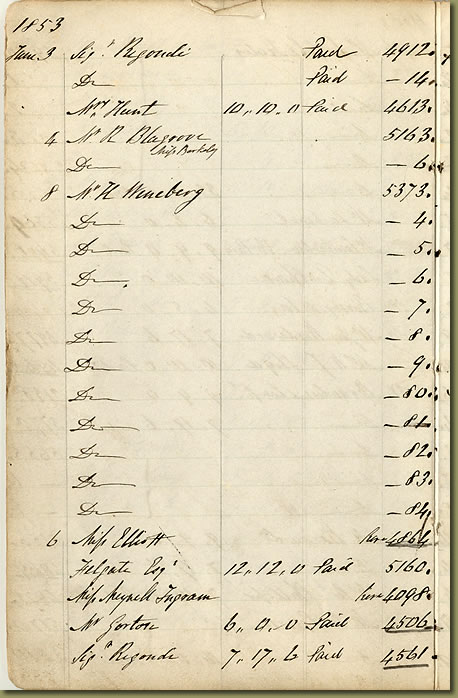 1853
June 3 Sigr. Regondi Paid 4912.
Do Paid – 14.
Mrs. Hunt 10,, 10,, 0 Paid 4613.
4 Mr. R Blagrove 5163.
Miss Barkeley
Do – 6.
8 Mr. H. Wineberg 5373.
Do – 4.
Do – 5.
Do – 6.
Do – 7.
Do – 8.
Do – 9.
Do – 80.
Do – 81.
Do – 82.
Do – 83.
Do – 84.
6 Miss Elliott 4864
Felgate Esqr. 12,, 12,, 0 Paid 5160.
Miss Meynell Ingram hire 4098.
Mr. Gorton 6,, 0,, 0 Paid 4506.
Sigr. Regondi 7,, 17,, 6 Paid 4561.